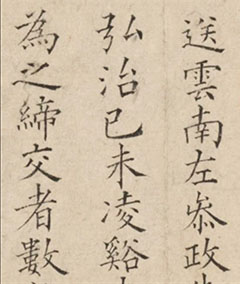 送雲南左叅政
弘治己未凌谿
為之締交者數